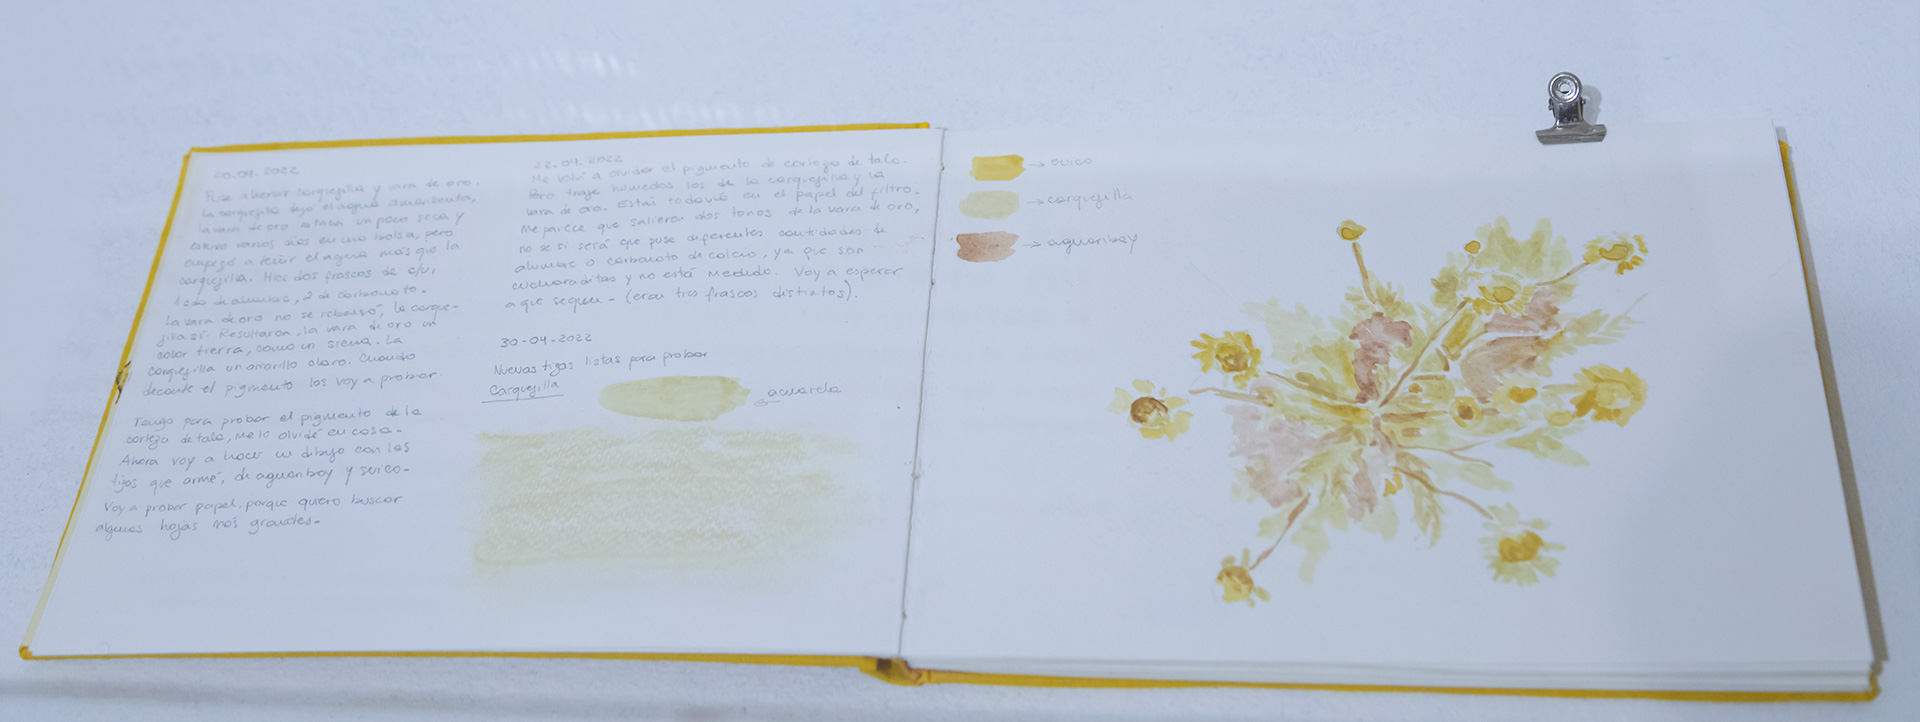 20.04.2022
Puse a hervir carquejilla y vara de oro.
La carquejilla dejó el agua amarillenta,
la vara de oro estaba un poco seca y
estuvo varios días en una bolsa, pero
empezó a teñir el agua más que la
carquejilla. Hice dos frascos de c/u,
1 cda de alumbre, 2 de carbonato.
La vara de oro no se rebalsó, la carque-
jilla sí. Resultaron, la vara de oro un
color tierra, como un siena. La
carquejilla un amarillo claro. Cuando
decante el pigmento los voy a probar.
Tengo para probar el pigmento de la
corteza de tala, me lo olvidé en casa.
Ahora voy a hacer un dibujo con las
tizas que armé, de aguaribay y suico.
Voy a probar papel, porque quiero buscar
algunas hojas más grandes.
22.04.2022
Me volví a olvidar el pigmento de corteza de tala.
Pero traje húmedos los de la carquejilla y la
vara de oro. Están todavía en el papel del filtro.
Me parece que salieron dos tonos de la vara de oro,
no se si será que puse diferentes cantidades de
alumbre o carbonato de calcio, ya que son
cucharaditas y no está medido. Voy a esperar
a que sequen - (eran tres frascos distintos).
30-04-2022
Nuevas tizas listas para probar
Carquejilla
acuarela
→ suico
→ carquejilla
→ aguaribay